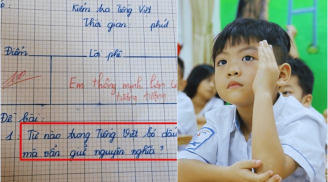 Kiểm tra Tiếng Việt
Thời gian: phút
Điểm
Lời phê
10
Em thông minh hơn cô
tưởng
Đề bài:
1. Từ nào trong Tiếng Việt bỏ dấu
mà vẫn giữ nguyên nghĩa?